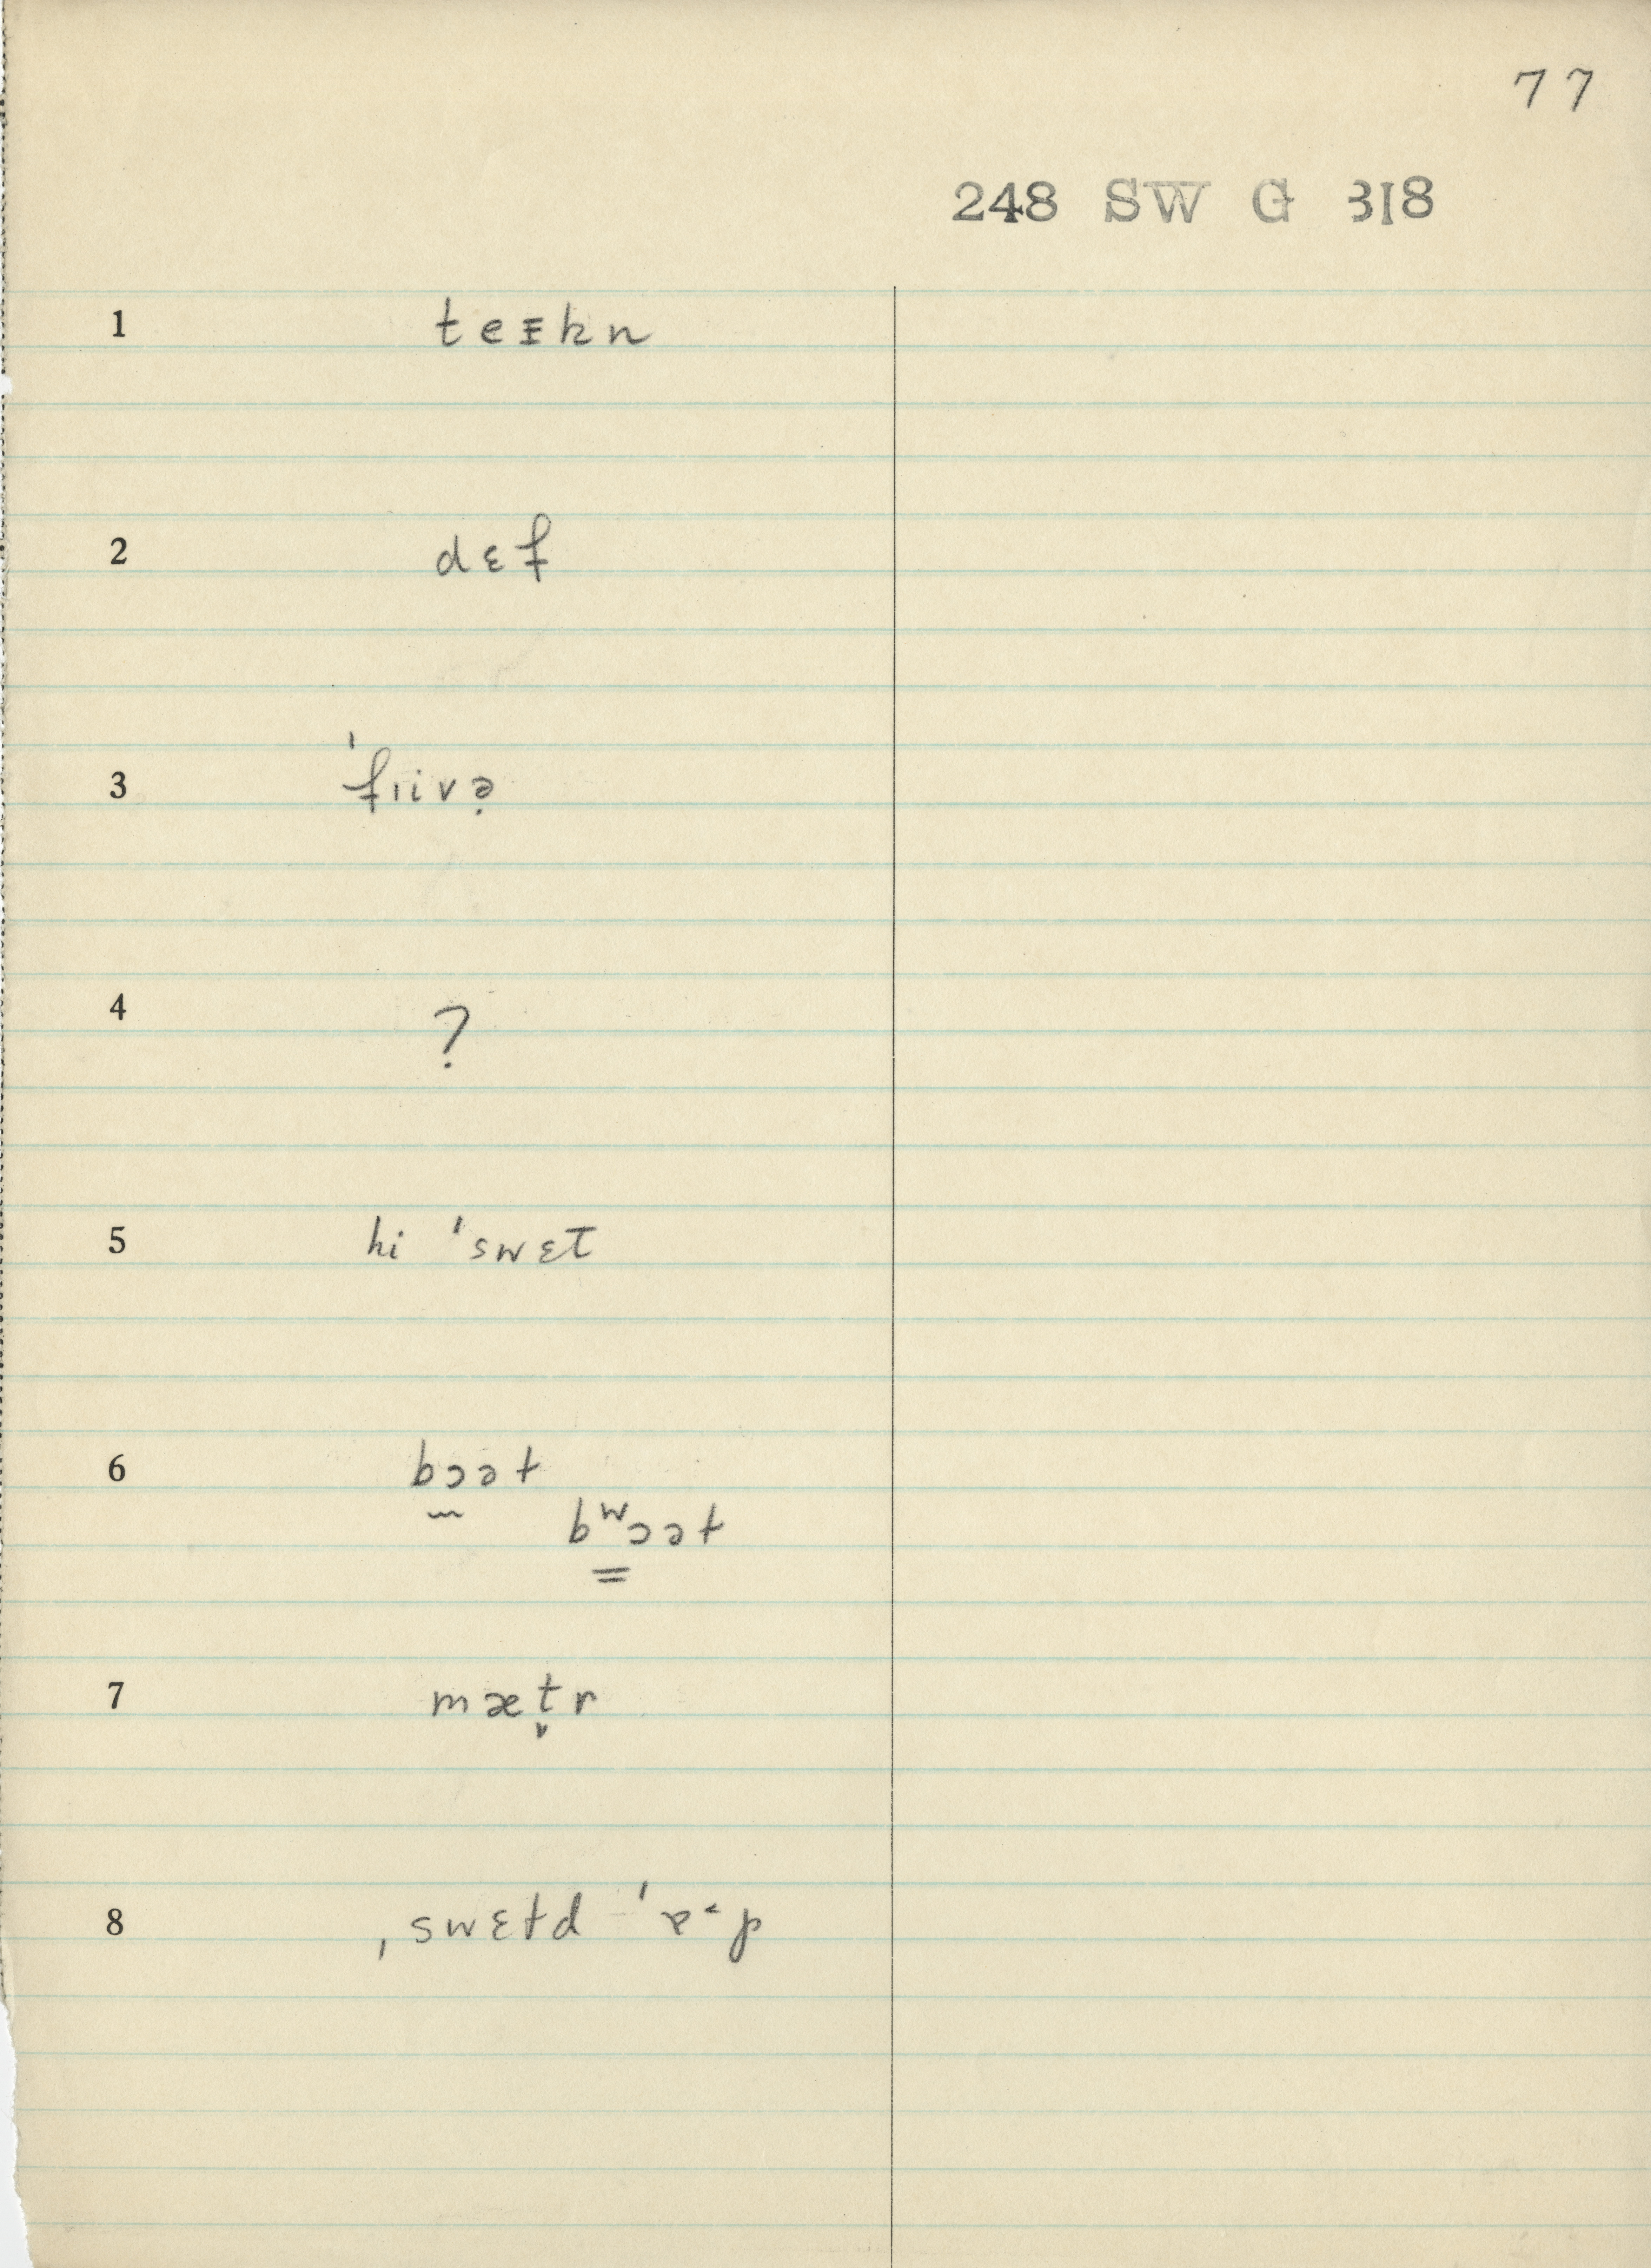 77
248 SW G 318
1 teɪ̵kn
2 dɛf
3 ˈfɪivə̣
4 ?
5 hi ˈswɛt
6 bɔət
bʷɔət
7 mæt̬r
8 ˌswɛtd